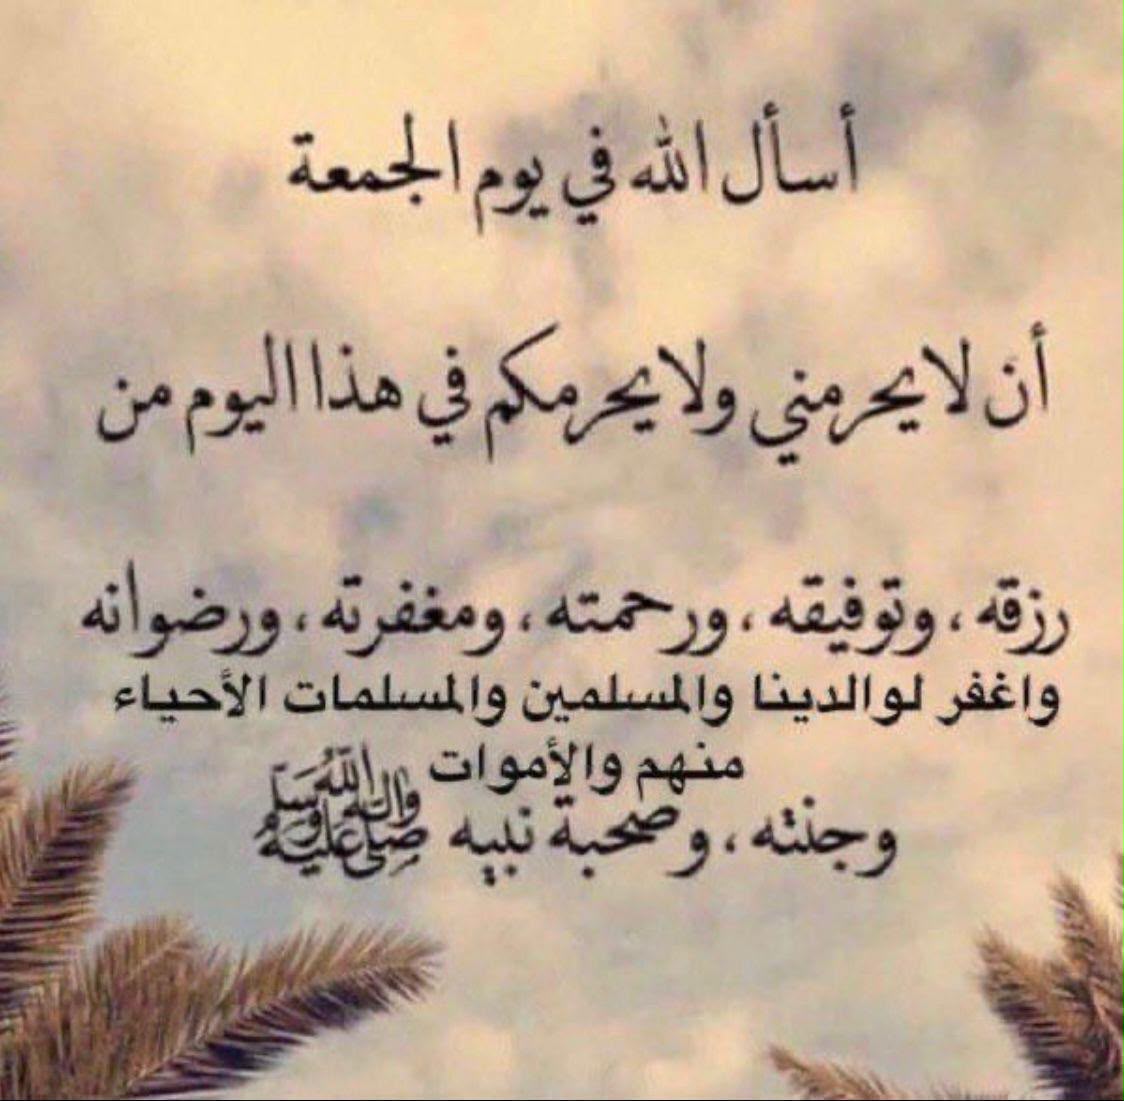 أسأل الله في يوم الجمعة
أن لا يحرمني ولا يحرمكم في هذا اليوم من
رزقه ، وتوفيقه ، ورحمته ، ومغفرته ، ورضوانه
واغفر لوالدينا والمسلمين والمسلمات الأحياء
منهم والأموات
وجنته ، وصحبة نبيه صلى الله عليه وآله وسلم